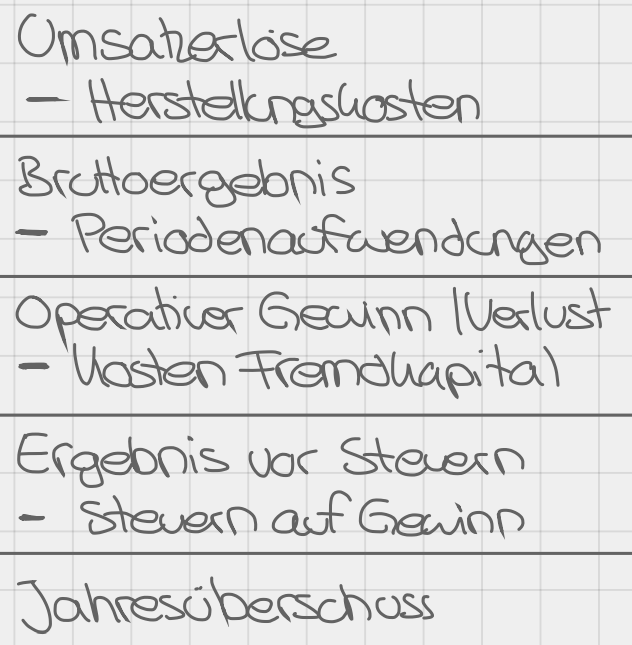 Umsatzerlöse
- Herstellungskosten
Bruttoergebnis
- Periodenaufwendungen
Operativer Gewinn / Verlust
- Kosten Fremdkapital
Ergebnis vor Steuern
- Steuern auf Gewinn
Jahresüberschuss